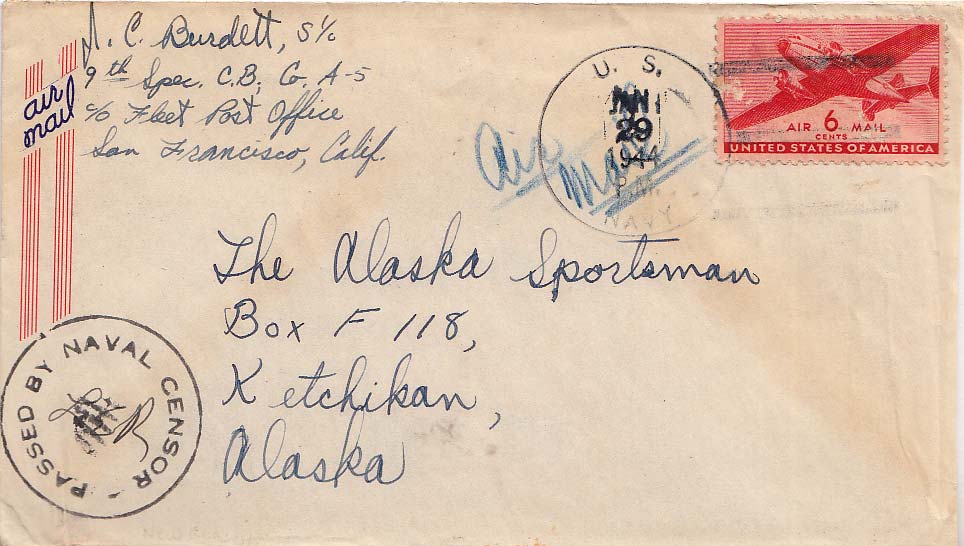 C. Burdett, S 1/c
9th Spec. C.B; Co. A-5
c/o Fleet Post Office
San Francisco, Calif.
air
mail
Air
Mail
U. S.
29
1944
P.M.
NAVY
AIR 6 MAIL
CENTS
UNITED STATES OF AMERICA
The Alaska Sportsman
Box F 118,
Ketchikan,
Alaska
PASSED BY NAVAL CENSOR